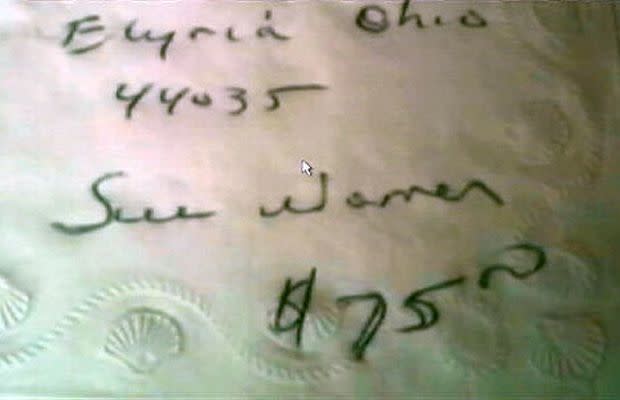 Elyria Ohio
44035
Sue Warner
$75